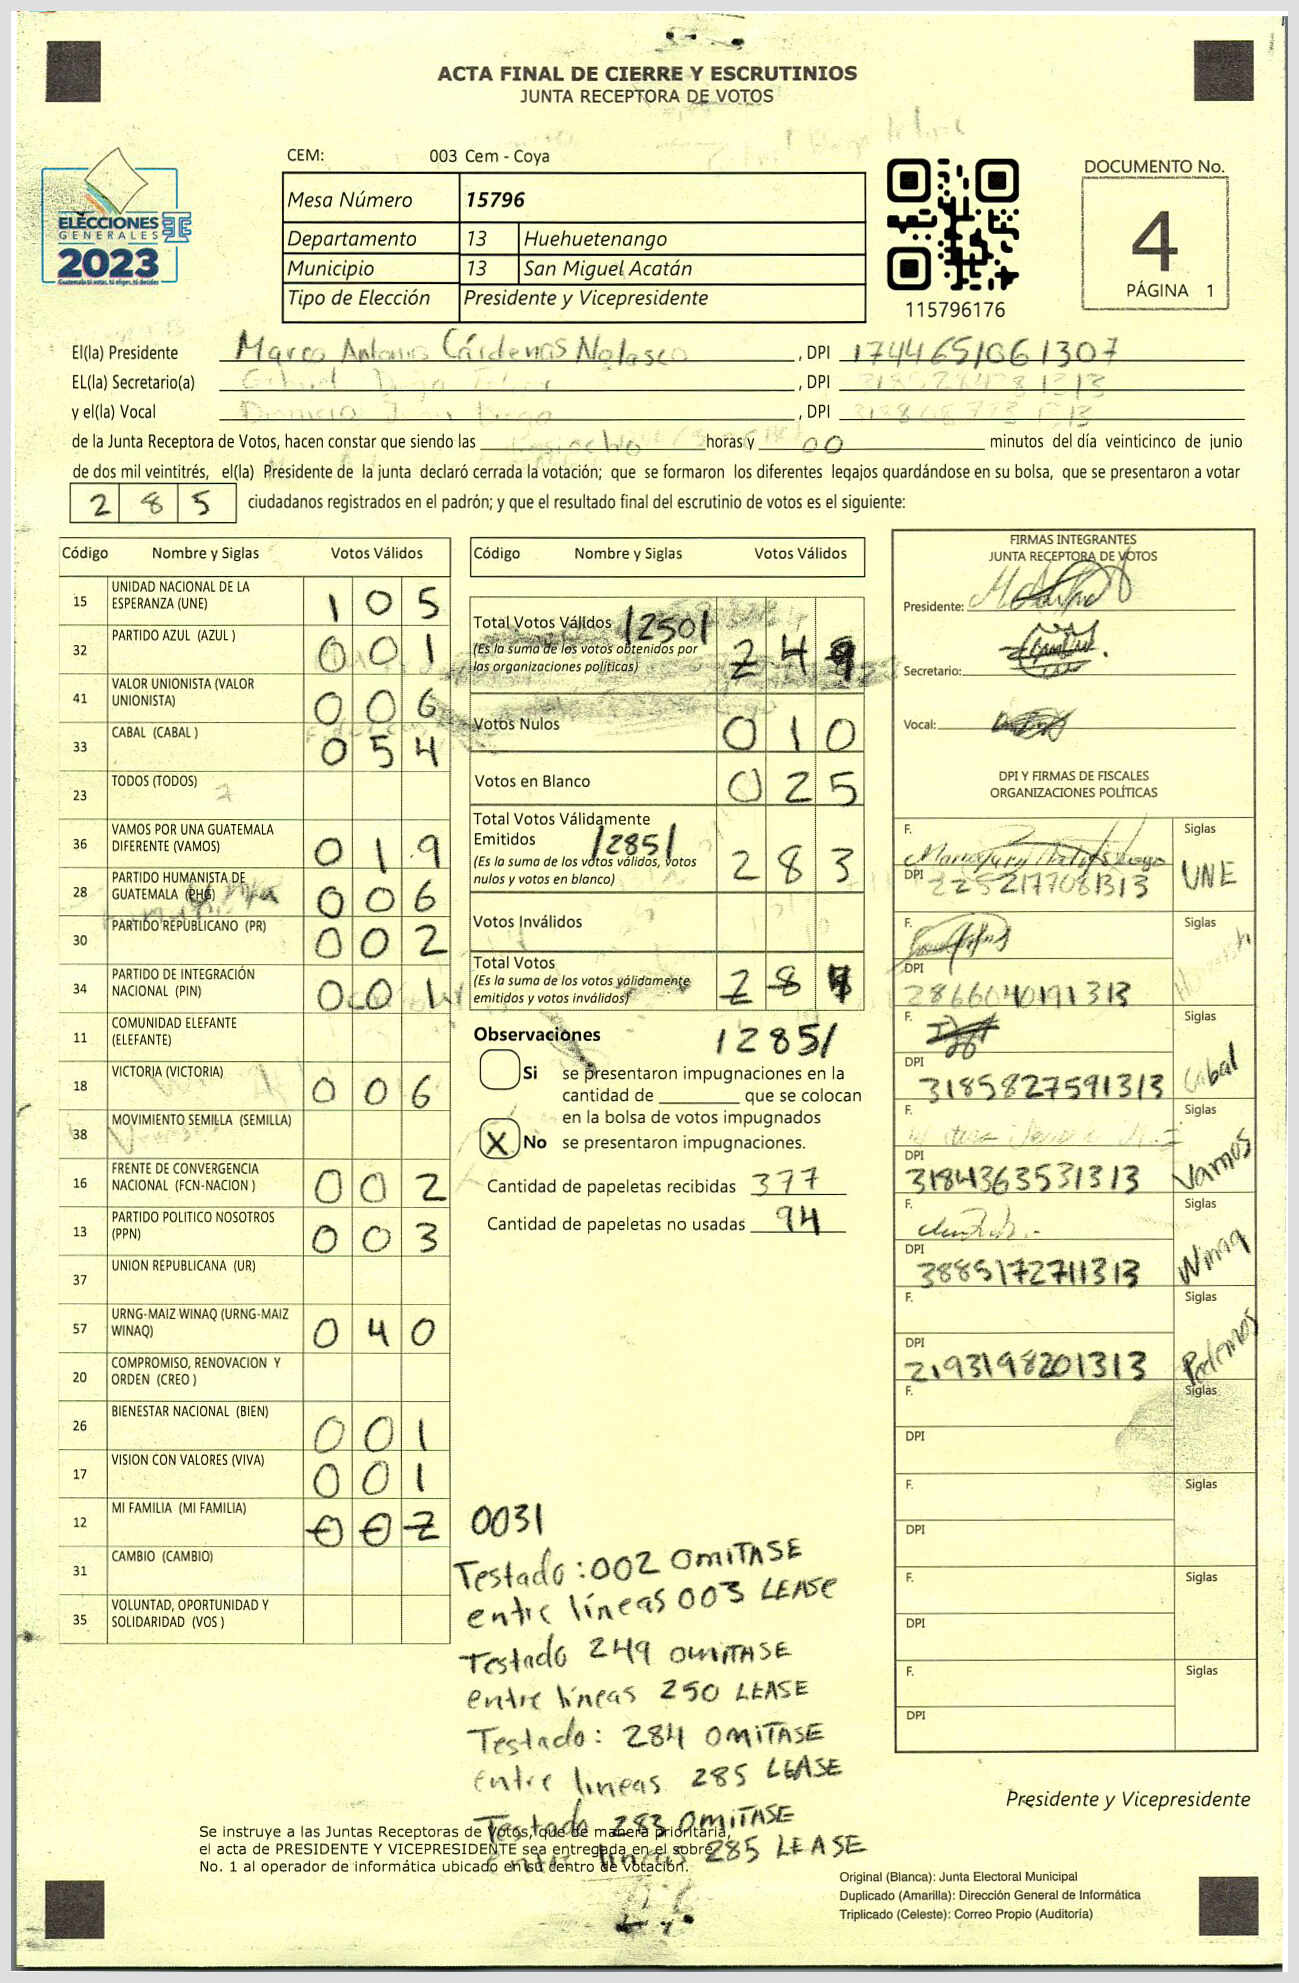 ACTA FINAL DE CIERRE Y ESCRUTINIOS
JUNTA RECEPTORA DE VOTOS
ELECCIONES
GENERALES
2023
CEM: 003 Cem - Coya
Mesa Número 15796
Departamento 13 Huehuetenango
Municipio 13 San Miguel Acatán
Tipo de Elección Presidente y Vicepresidente
115796176
DOCUMENTO No.
4
PÁGINA 1
El(la) Presidente Marco Antonio Cárdenas Nolasco, DPI 1744651061307
EL(la) Secretario(a) , DPI
y el(la) Vocal , DPI
de la Junta Receptora de Votos, hacen constar que siendo las horas y 00 minutos del día veinticinco de junio
de dos mil veintitrés, el(la) Presidente de la junta declaró cerrada la votación; que se formaron los diferentes legajos quardándose en su bolsa, que se presentaron a votar
285 ciudadanos registrados en el padrón; y que el resultado final del escrutinio de votos es el siguiente:
Código Nombre y Siglas Votos Válidos
15 UNIDAD NACIONAL DE LA ESPERANZA (UNE) 105
32 PARTIDO AZUL (AZUL ) 001
41 VALOR UNIONISTA (VALOR UNIONISTA) 006
33 CABAL (CABAL ) 054
23 TODOS (TODOS)
36 VAMOS POR UNA GUATEMALA DIFERENTE (VAMOS) 019
28 PARTIDO HUMANISTA DE GUATEMALA (PHG) 006
30 PARTIDO REPUBLICANO (PR) 002
34 PARTIDO DE INTEGRACIÓN NACIONAL (PIN) 001
11 COMUNIDAD ELEFANTE (ELEFANTE)
18 VICTORIA (VICTORIA) 006
38 MOVIMIENTO SEMILLA (SEMILLA)
16 FRENTE DE CONVERGENCIA NACIONAL (FCN-NACION ) 002
13 PARTIDO POLITICO NOSOTROS (PPN) 003
37 UNION REPUBLICANA (UR)
57 URNG-MAIZ WINAQ (URNG-MAIZ WINAQ) 040
20 COMPROMISO, RENOVACION Y ORDEN (CREO )
26 BIENESTAR NACIONAL (BIEN) 001
17 VISION CON VALORES (VIVA) 001
12 MI FAMILIA (MI FAMILIA) 002 003/
31 CAMBIO (CAMBIO)
35 VOLUNTAD, OPORTUNIDAD Y SOLIDARIDAD (VOS )
Código Nombre y Siglas Votos Válidos
Total Votos Válidos /250/
(Es la suma de los votos obtenidos por
las organizaciones políticas) 249
Votos Nulos 010
Votos en Blanco 025
Total Votos Válidamente
Emitidos /285/
(Es la suma de los votos válidos, votos
nulos y votos en blanco) 283
Votos Inválidos
Total Votos
(Es la suma de los votos válidamente
emitidos y votos inválidos) 284
Observaciones /285/
Si se presentaron impugnaciones en la
cantidad de que se colocan
en la bolsa de votos impugnados
X No se presentaron impugnaciones.
Cantidad de papeletas recibidas 377
Cantidad de papeletas no usadas 94
Testado: 002 OMITASE
entre líneas 003 LEASE
Testado 249 OMITASE
entre líneas 250 LEASE
Testado: 284 OMITASE
entre lineas 285 LEASE
Testado 283 OMITASE
entre lineas 285 LEASE
FIRMAS INTEGRANTES
JUNTA RECEPTORA DE VOTOS
Presidente:
Secretario:
Vocal:
DPI Y FIRMAS DE FISCALES
ORGANIZACIONES POLÍTICAS
F. Siglas
DPI 2252177081313 UNE
F. Siglas
DPI 2866040191313
F. Siglas
DPI 3185827591313 Cabal
F. Siglas
DPI 3184363531313 Vamos
F. Siglas
DPI 3885172711313 Winaq
F. Siglas
DPI 2193198201313 Podemos
F. Siglas
DPI
F. Siglas
DPI
F. Siglas
DPI
F. Siglas
DPI
Presidente y Vicepresidente
Se instruye a las Juntas Receptoras de Votos, que de manera prioritaria,
el acta de PRESIDENTE Y VICEPRESIDENTE sea entregada en el sobre
No. 1 al operador de informática ubicado en su centro de votación.
Original (Blanca): Junta Electoral Municipal
Duplicado (Amarilla): Dirección General de Informática
Triplicado (Celeste): Correo Propio (Auditoría)